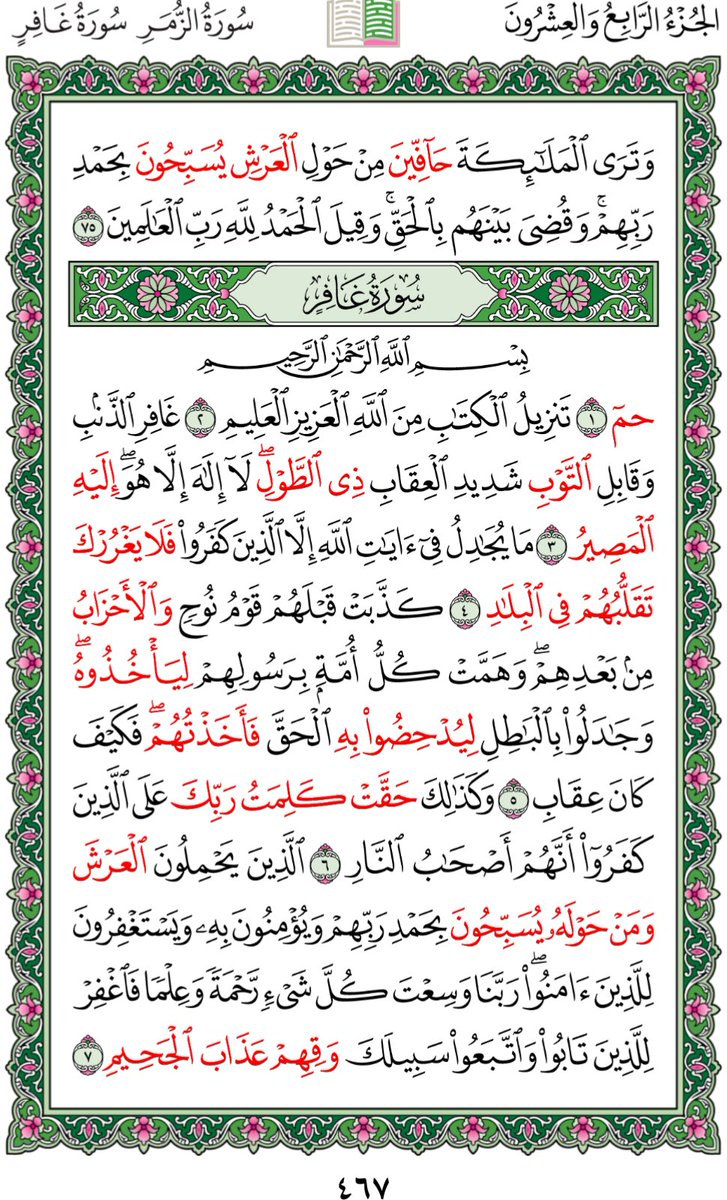 الجُزْءُ الرَّابِعُ وَالعِشْرُونَ سُورَةُ الزُّمَرِ سُورَةُ غَافِرٍ
وَتَرَى ٱلْمَلَٰٓئِكَةَ حَآفِّينَ مِنْ حَوْلِ ٱلْعَرْشِ يُسَبِّحُونَ بِحَمْدِ
رَبِّهِمْۚ وَقُضِىَ بَيْنَهُم بِٱلْحَقِّۚ وَقِيلَ ٱلْحَمْدُ لِلَّهِ رَبِّ ٱلْعَٰلَمِينَ ٧٥
سُورَةُ غَافِرٍ
بِسْمِ ٱللَّهِ ٱلرَّحْمَٰنِ ٱلرَّحِيمِ
حمٓ ١ تَنزِيلُ ٱلْكِتَٰبِ مِنَ ٱللَّهِ ٱلْعَزِيزِ ٱلْعَلِيمِ ٢ غَافِرِ ٱلذَّنۢبِ
وَقَابِلِ ٱلتَّوْبِ شَدِيدِ ٱلْعِقَابِ ذِى ٱلطَّوْلِۖ لَآ إِلَٰهَ إِلَّا هُوَۖ إِلَيْهِ
ٱلْمَصِيرُ ٣ مَا يُجَٰدِلُ فِىٓ ءَايَٰتِ ٱللَّهِ إِلَّا ٱلَّذِينَ كَفَرُوا۟ فَلَا يَغْرُرْكَ
تَقَلُّبُهُمْ فِى ٱلْبِلَٰدِ ٤ كَذَّبَتْ قَبْلَهُمْ قَوْمُ نُوحٍ وَٱلْأَحْزَابُ
مِنۢ بَعْدِهِمْۖ وَهَمَّتْ كُلُّ أُمَّةٍۭ بِرَسُولِهِمْ لِيَأْخُذُوهُۖ
وَجَٰدَلُوا۟ بِٱلْبَٰطِلِ لِيُدْحِضُوا۟ بِهِ ٱلْحَقَّ فَأَخَذْتُهُمْۖ فَكَيْفَ
كَانَ عِقَابِ ٥ وَكَذَٰلِكَ حَقَّتْ كَلِمَتُ رَبِّكَ عَلَى ٱلَّذِينَ
كَفَرُوٓا۟ أَنَّهُمْ أَصْحَٰبُ ٱلنَّارِ ٦ ٱلَّذِينَ يَحْمِلُونَ ٱلْعَرْشَ
وَمَنْ حَوْلَهُۥ يُسَبِّحُونَ بِحَمْدِ رَبِّهِمْ وَيُؤْمِنُونَ بِهِۦ وَيَسْتَغْفِرُونَ
لِلَّذِينَ ءَامَنُوا۟ۖ رَبَّنَا وَسِعْتَ كُلَّ شَىْءٍ رَّحْمَةً وَعِلْمًا فَٱغْفِرْ
لِلَّذِينَ تَابُوا۟ وَٱتَّبَعُوا۟ سَبِيلَكَ وَقِهِمْ عَذَابَ ٱلْجَحِيمِ ٧
٤٦٧